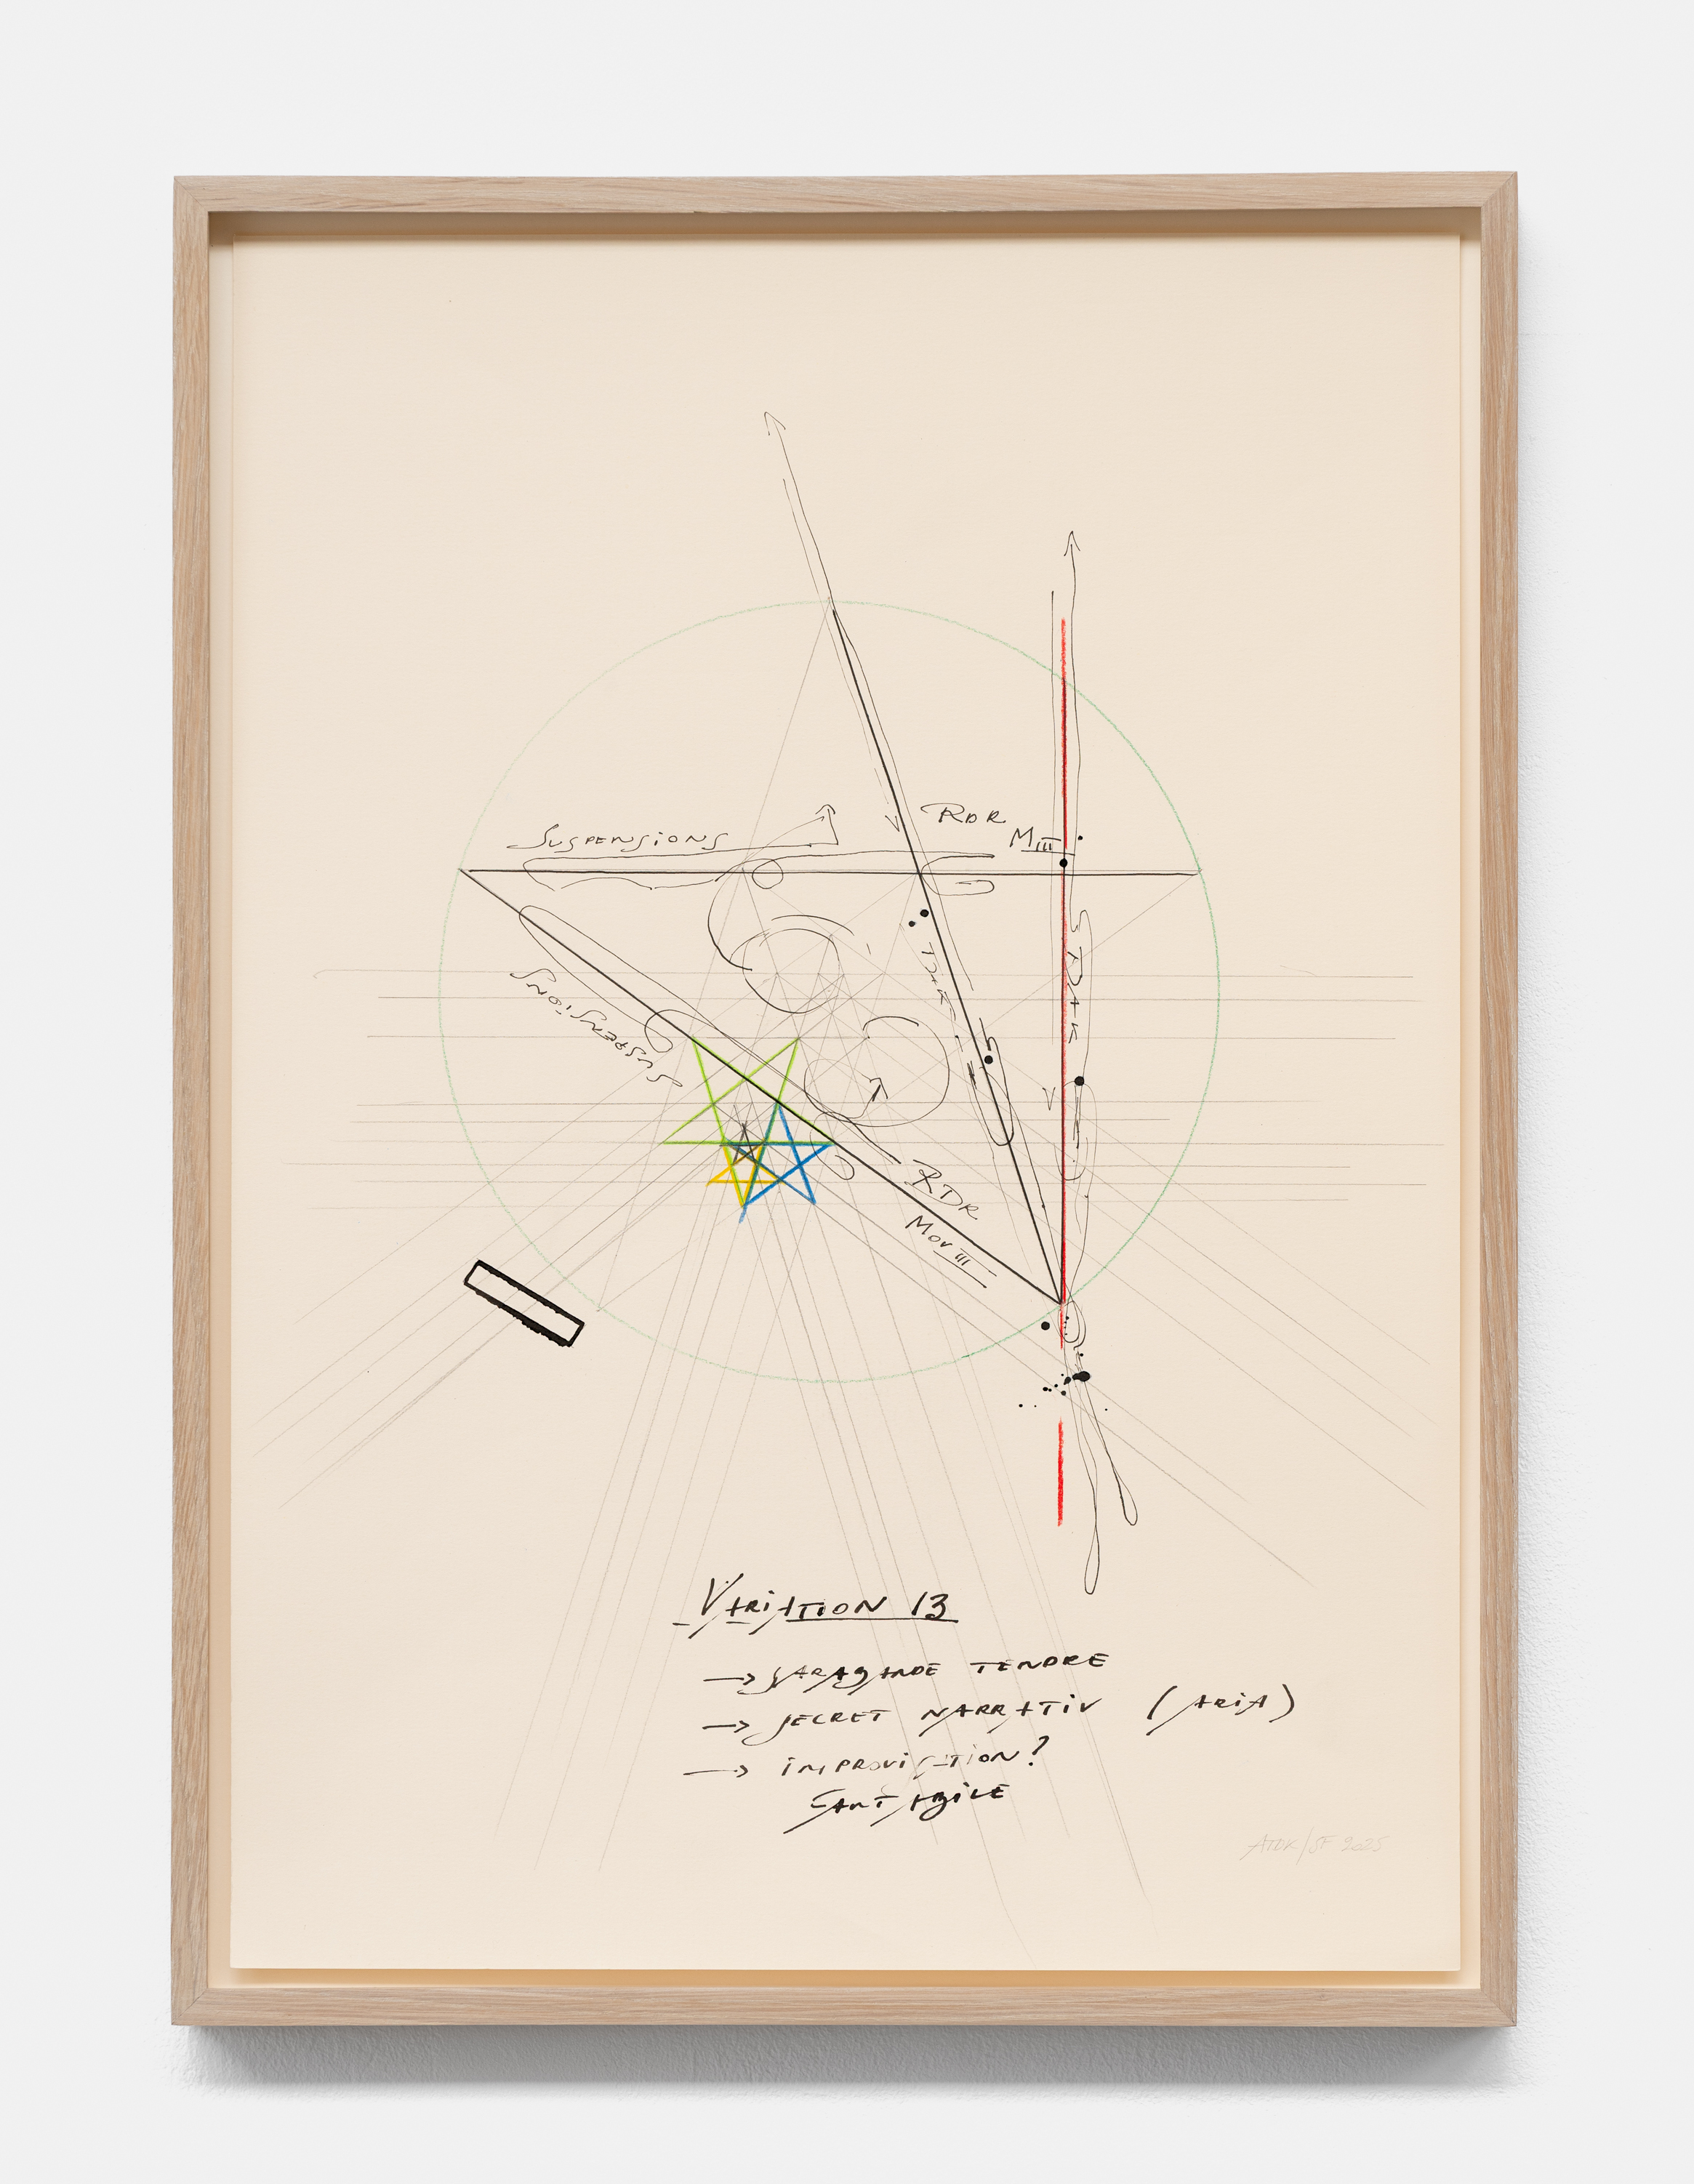 Suspensions
RDR
MIII
Suspensions
RDR
Mov III
Variation 13
→ Sarabande tendre
→ Secret narrativ (aria)
→ improvisation?
Cantabile
ATDK/SF 2025